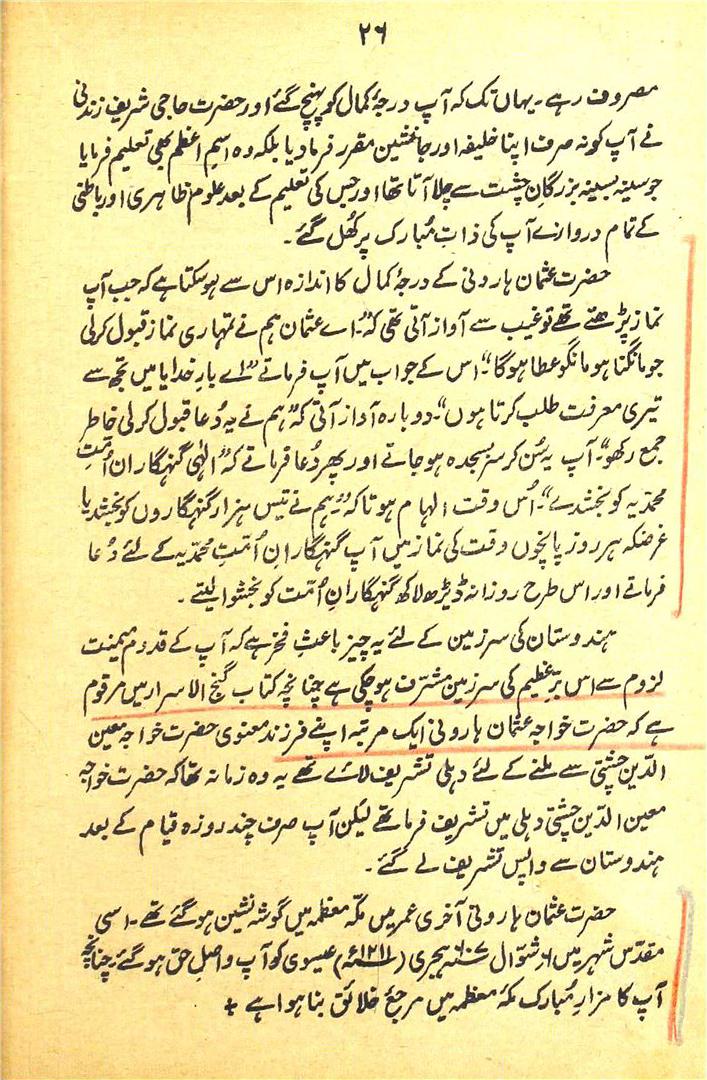 ۲۶
مصروف رہے۔ یہاں تک کہ آپ درجۂ کمال کو پہنچ گئے اور حضرت حاجی شریف زندنی
نے آپ کو نہ صرف اپنا خلیفہ اور جانشین مقرر فرما دیا بلکہ وہ اسمِ اعظم بھی تعلیم فرمایا
جو سینہ بسینہ بزرگانِ چشت سے چلا آتا تھا اور جس کی تعلیم کے بعد علومِ ظاہری اور باطنی
کے تمام دروازے آپ کی ذاتِ مُبارک پر کُھل گئے۔
حضرت عثمان ہارونی کے درجۂ کمال کا اندازہ اس سے ہو سکتا ہے کہ جب آپ
نماز پڑھتے تھے تو غیب سے آواز آتی تھی کہ "اے عثمان ہم نے تمہاری نماز قبول کر لی
جو مانگنا ہو مانگو عطا ہوگا"۔ اس کے جواب میں آپ فرماتے "اے بارِ خدایا میں تجھ سے
تیری معرفت طلب کرتا ہوں"۔ دوبارہ آواز آتی کہ "ہم نے یہ دُعا قبول کر لی خاطر
جمع رکھو"۔ آپ یہ سُن کر سر بسجدہ ہو جاتے اور پھر دُعا فرماتے کہ "الٰہی گنہگارانِ اُمّتِ
محمدیہ کو بخشدے"۔ اُس وقت الہام ہوتا کہ "ہم نے تیس ہزار گنہگاروں کو بخشدیا
غرضکہ ہر روز پانچوں وقت کی نماز میں آپ گنہگارانِ اُمّتِ محمدیہ کے لئے دُعا
فرماتے اور اس طرح روزانہ ڈیڑھ لاکھ گنہگارانِ اُمّت کو بخشوا لیتے۔
ہندوستان کی سرزمین کے لئے یہ چیز باعثِ فخر ہے کہ آپ کے قدومِ میمنت
لزوم سے اس برِّ عظیم کی سرزمین مشرّف ہو چکی ہے چنانچہ کتاب گنج الاسرار میں مرقوم
ہے کہ حضرت خواجہ عثمان ہارونی ایک مرتبہ اپنے فرزندِ معنوی حضرت خواجہ معین
الدّین چشتی سے ملنے کے لئے دہلی تشریف لائے تھے یہ وہ زمانہ تھا کہ حضرت خواجہ
معین الدّین چشتی دہلی میں تشریف فرما تھے لیکن آپ صرف چند روزہ قیام کے بعد
ہندوستان سے واپس تشریف لے گئے۔
حضرت عثمان ہارونی آخری عمر میں مکّہ معظمہ میں گوشہ نشین ہو گئے تھے۔ اسی
مقدّس شہر میں ۶ شوّال ۶۰۷ ہجری (۱۲۱۱ء) عیسوی کو آپ واصلِ حق ہو گئے چنانچہ
آپ کا مزارِ مُبارک مکّہ معظمہ میں مرجعِ خلائق بنا ہوا ہے +